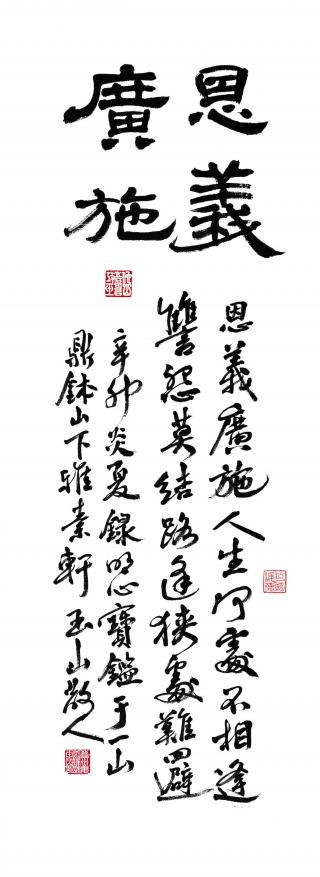 恩義
廣施
恩義廣施人生何處不相逢
讐怨莫結路逢狹處難回避
辛卯炎夏錄明心寶鑑于一山
鼎鉢山下雅素軒 玉山散人